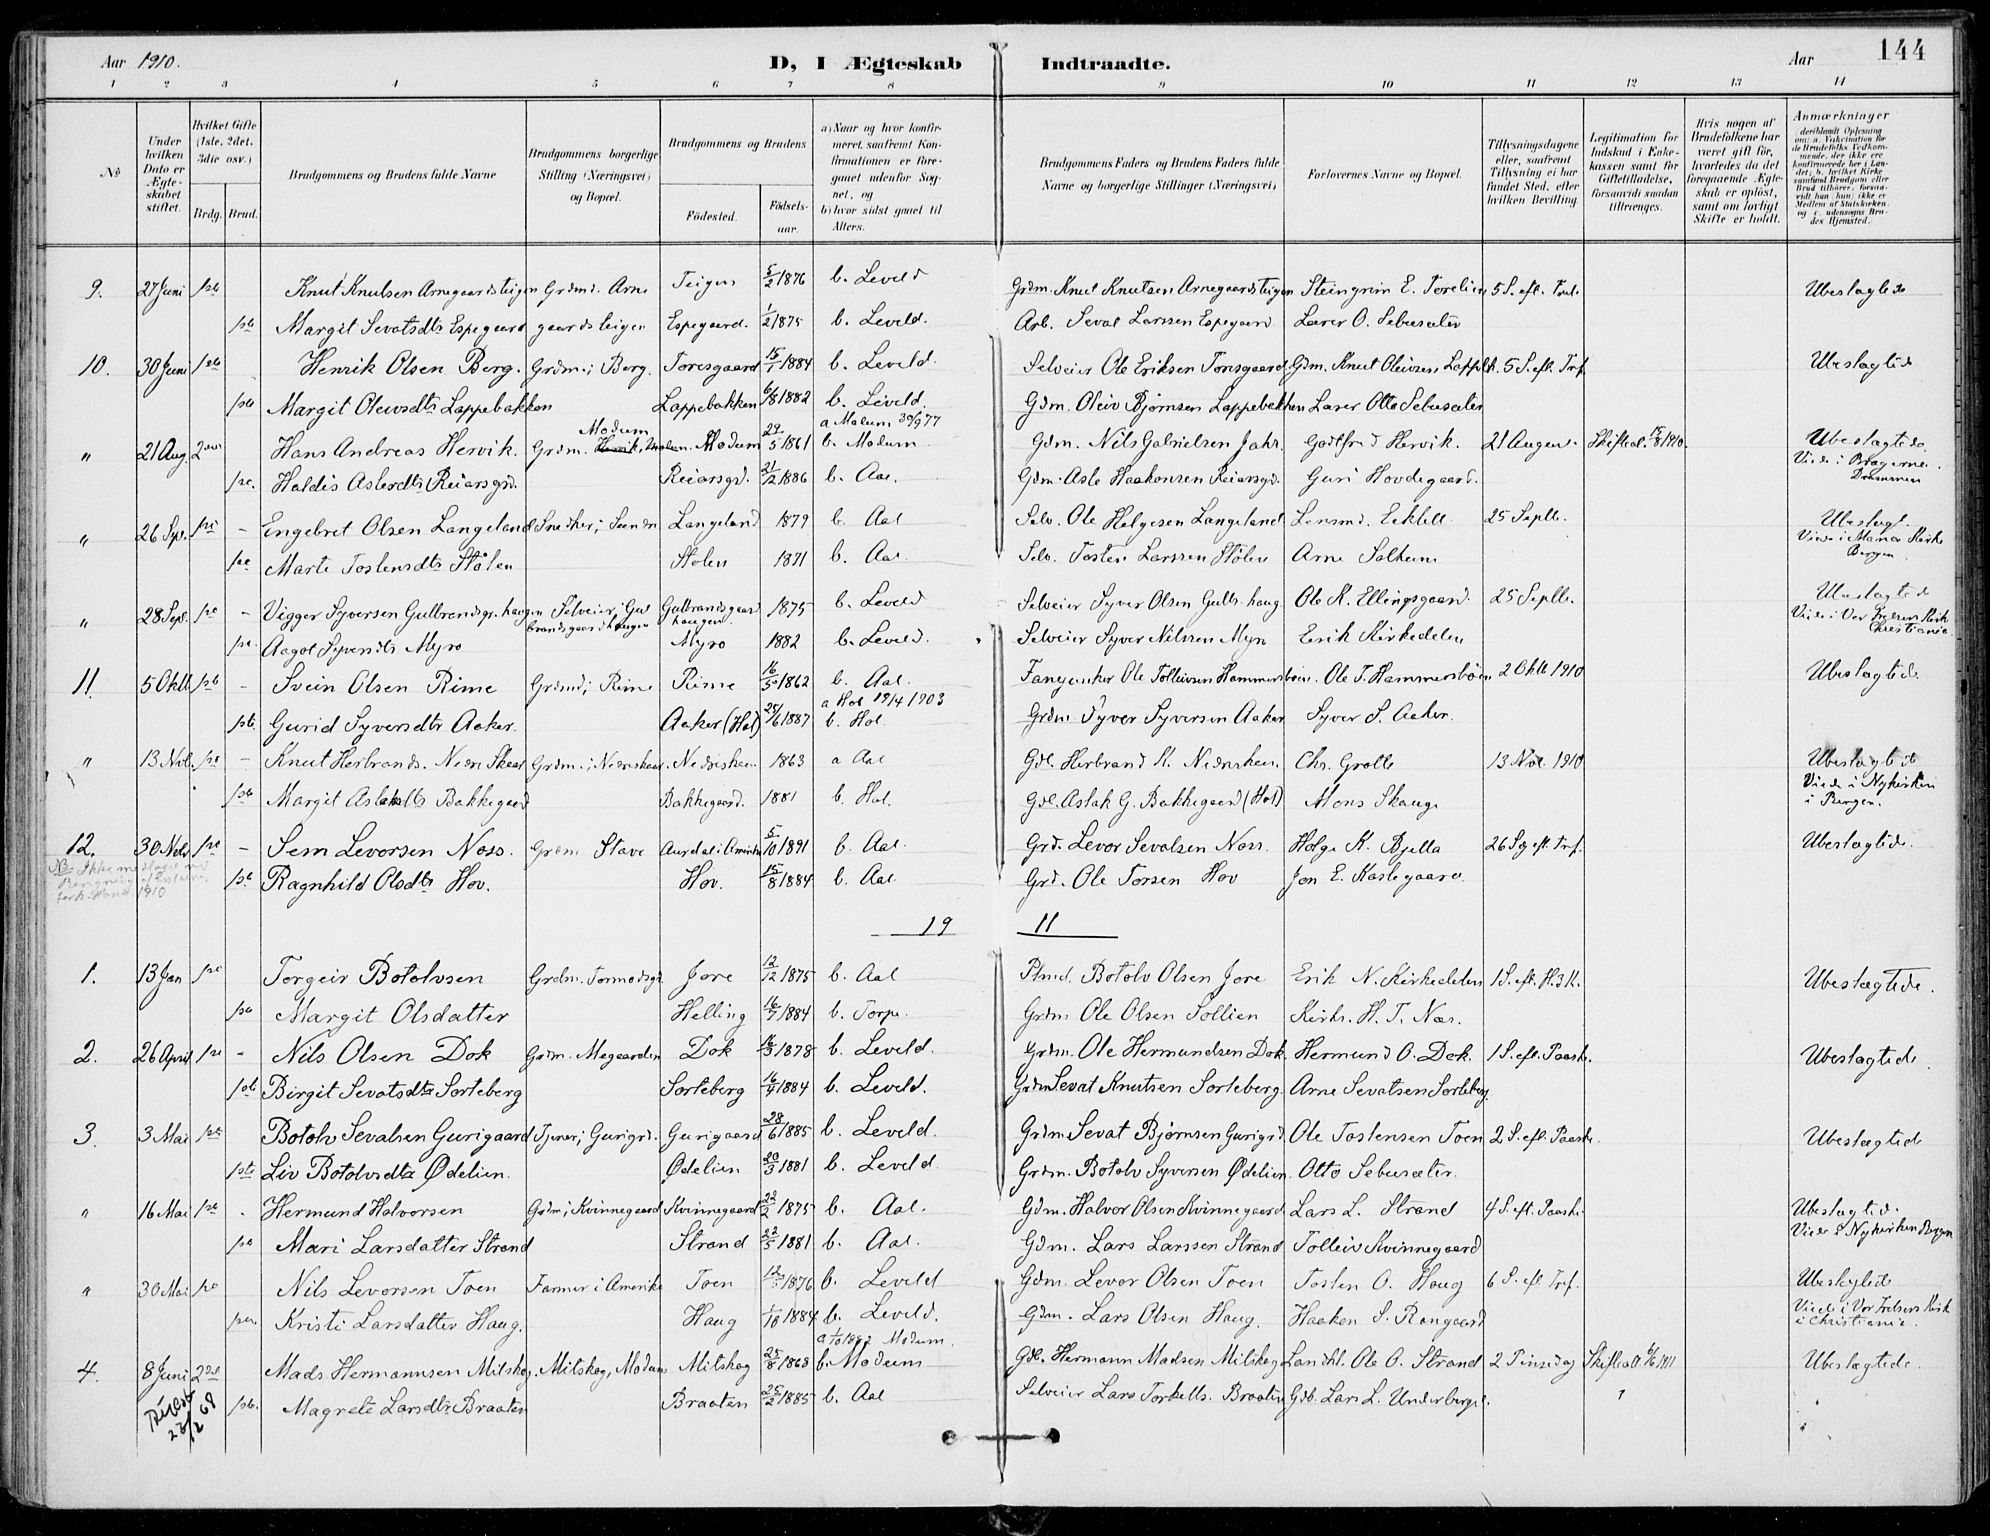 Aar 1910. D, I Ægteskab Indtraadte. Aar 144
1 2 3 4 5 6 7 8 9 10 11 12 13 14
No
Under hvilken Dato er Ægteskabet stiftet.
Hvilket Gifte (1ste, 2det, 3die osv.)
Brdg. Brud.
Brudgommens og Brudens fulde Navne
Brudgommens borgerlige Stilling (Næringsvei) og Bopæl.
Brudgommens og Brudens
Fødested. Fødselsaar.
a) Naar og hvor konfirmeret, saafremt Konfirmationen er foregaaet udenfor Sognet, og
b) hvor sidst gaaet til Alters.
Brudgommens Faders og Brudens Faders fulde Navne og borgerlige Stillinger (Næringsvei)
Forlovernes Navne og Bopæl.
Tillysningsdagene eller, saafremt Tillysning ei har fundet Sted, efter hvilken Bevilling.
Legitimation for Indskud i Enkekassen samt for Giftetilladelse, forsaavidt saadan tiltrænges.
Hvis nogen af Brudefolkene har været gift før, hvorledes da det foregaaende Ægteskab er opløst, samt om lovligt Skifte er holdt.
Anmærkninger deriblandt Oplysning om: a. Vakcination for de Brudefolks Vedkommende, der ikke ere konfirmerede her i Landet; b. hvilket Kirkesamfund Brudgom eller Brud tilhører, forsaavidt han, hun, ikke er Medlem af Statskirken, og c. udensogns Brudes Hjemsted.
9. 27 Juni Knut Knutsen Arnegaardsteigen Grdmd. Arne Teigen 5/2 1876 b. Leveld Grdm. Knut Knutsen Arnegaardsteigen Steingrim E. Torelien 5 S. eft. Tref. Ubeslagtede
Margit Sevatsdtr Espegaard gaardsteigen Espegaard. 1/2 1875 b. Leveld. Arb. Sevat Larssen Espegaard Lærer O. Sebusæter
10. 30 Juni Henrik Olsen Berg. Grdm. i Berg. Toresgaard 15/1 1884 b. Leveld. Selveier Ole Eriksen Toresgaard Gdm. Knut Oleivsen Lappeb. 5 S. eft. Trf. Ubeslagtede
Margit Oleivsdtr Lappebakken Lappebakken 6/8 1882 b. Leveld. Gdm. Oleiv Bjørnsen Lappebakken Lærer Otto Sebusæter
" 21 Aug. Hans Andreas Hervik. Grdm. Modum Modum 29/5 1861 a Modum 30/9 77 b. Modum Gdm. Nils Gabrielsen Jahr. Godtfred Hervik. 21 August. Skifteat. 15/8 1910. Ubeslagtede. Viede i Bragernes Drammen
Haldis Aslesdtr Reiarsgrd. Reiarsgrd. 21/12 1886 b. Aal. Gdm. Asle Haakonsen Reiarsgd. Guri Hovdegaard.
" 26 Sep. Engebret Olsen Langeland Snedker i Langeland 1879 b. Aal Selv. Ole Helgesen Langeland Lensmd. Eckell 25 Septb. Ubeslagt. Viede i Maria Kirke Bergen
Marte Tostensdtr Stølen Stølen 1871 b. Aal. Selv. Tosten Larssen Stølen Arne Solheim
" 28 Sep. Vigger Syversen Gulbrandsgr. haugen Selveier, Gulbrandsgaardhaugen Gulbrandsgaard haugen. 1875 b. Leveld Selveier Syver Olsen Gulb. haug. Ole K. Ellingsgaard. 25 Septb. Ubeslagtede Viede i Vor Frelsers Kirk Christiania
Aagot Syversdtr Myro Myro 1882 b. Leveld. Selveier Syver Nilssen Myro Erik Kirkedelen
11. 5 Oktb. Svein Olsen Rime Grdmd i Rime Rime 16/5 1862 b. Aal. Ole Tolleivsen Hammersbøen. Ole T. Hammersbøen 2 Oktb 1910 Ubeslagtede
Gurid Syversdtr Aaker. Aaker (Hol) 25/6 1887 a Hol 19/4 1903 b. Hol. Grdm. Syver Syversen Aaker Syver S. Aaker
" 13 Nvb. Knut Herbrands. Nedre Skear Grdm. i Nedreskear. 1863 a Aal Gdb. Herbrand K. Nedreskear. Chr. Grotle 13 Nov. 1910. Ubeslagtede Viede i Nykirken i Bergen.
Margit Aslaksdtr Bakkegaard Bakkegaard. 1881 b. Hol. Gdb. Aslak G. Bakkegaard (Hol) Mons Skauge
12. 30 Novbr Sem Levorsen Noss. Grdm Stave Aurdal i Amerika 5/10 1891 b. Aal. Grd. Levor Sevalsen Noss. Helge K. Bjella 26 S. eft. Tref. Ubeslagtede.
Ragnhild Olsdtr Hov. Hov. 15/8 1884 b. Aal Grd. Ole Torsen Hov Jon E. Kaslegaard.
19 11
1. 13 Jan Torgeir Botolvsen Grdm. Tormodsgr. Jore 12/12 1875 b. Aal Botolv Olsen Jore Erik N. Kirkedelen 1 S. eft. H. 3 K. Ubeslægtede.
Margit Olsdatter Helling 16/7 1884 b. Torpe. Grdm Ole Olsen Sollien Kirks. H. T. Næs.
2. 26 April Nils Olsen Dok Grdm. Megaarden Dok 16/3 1878 b. Leveld. Grdm. Ole Hermundsen Dok. Hermund O. Dok. 1 S. eft. Paaske. Ubeslagtede
Birgit Sevatsdtr Sorteberg Sorteberg 16/9 1884 b. Leveld. Grdm Sevat Knutsen Sorteberg. Arne Sevatsen Sorteberg.
3. 3 Mai Botolv Sevatsen Gurigaard Tjener i Gurigrd. Gurigaard 28/6 1885 b. Leveld. Grdm. Sevat Bjørnsen Gurigrd. Ole Tostensen Toen 2 S. eft. Paaske. Ubeslægtede
Liv Botolvsdtr Ødelien. Ødelien 20/3 1881 b. Leveld. Grdm. Botolv Syversen Ødelien. Otto Sebusæter.
" 16 Mai Hermund Halvorsen Grdm i Kvinnegaard Kvinnegaard 22/2 1875 b. Aal. Gdm. Halvor Olsen Kvinnegaard Lars L. Strand 4 S. eft. Paaske. Ubeslagtede. Viede i Nykirken Bergen
Mari Larsdatter Strand Strand 22/5 1881 b. Aal. Gdm. Lars Larssen Strand Tolleiv Kvinnegaard
" 30 Mai Nils Levorsen Toen Farmer i Amerika Toen 1876 b. Leveld Gdm. Levor Olsen Toen Tosten O. Haug 6 S. eft Trf. Ubeslegtede Viede i Vor Frelsers Kirk i Christiania.
Kristi Larsdatter Haug. Haug 1/10 1884 b. Leveld. Gdm. Lars Olsen Haug. Haaken S. Rongaard
4. 8 Juni Mads Hermannsen Milskog. Milskog, Modum Milskog 25/8 1868 a 1882 Modum. b. Modum Gdb. Hermann Madsen Milskog Landhl. Ole O. Strand 2 Pinsedag Skifteatt 6/6 1911 Ubeslagtede.
Magrete Larsdtr Braaten Braaten 25/2 1885 b. Aal Selveier Lars Torkells. Braaten Gdb. Lars L. Underberge.